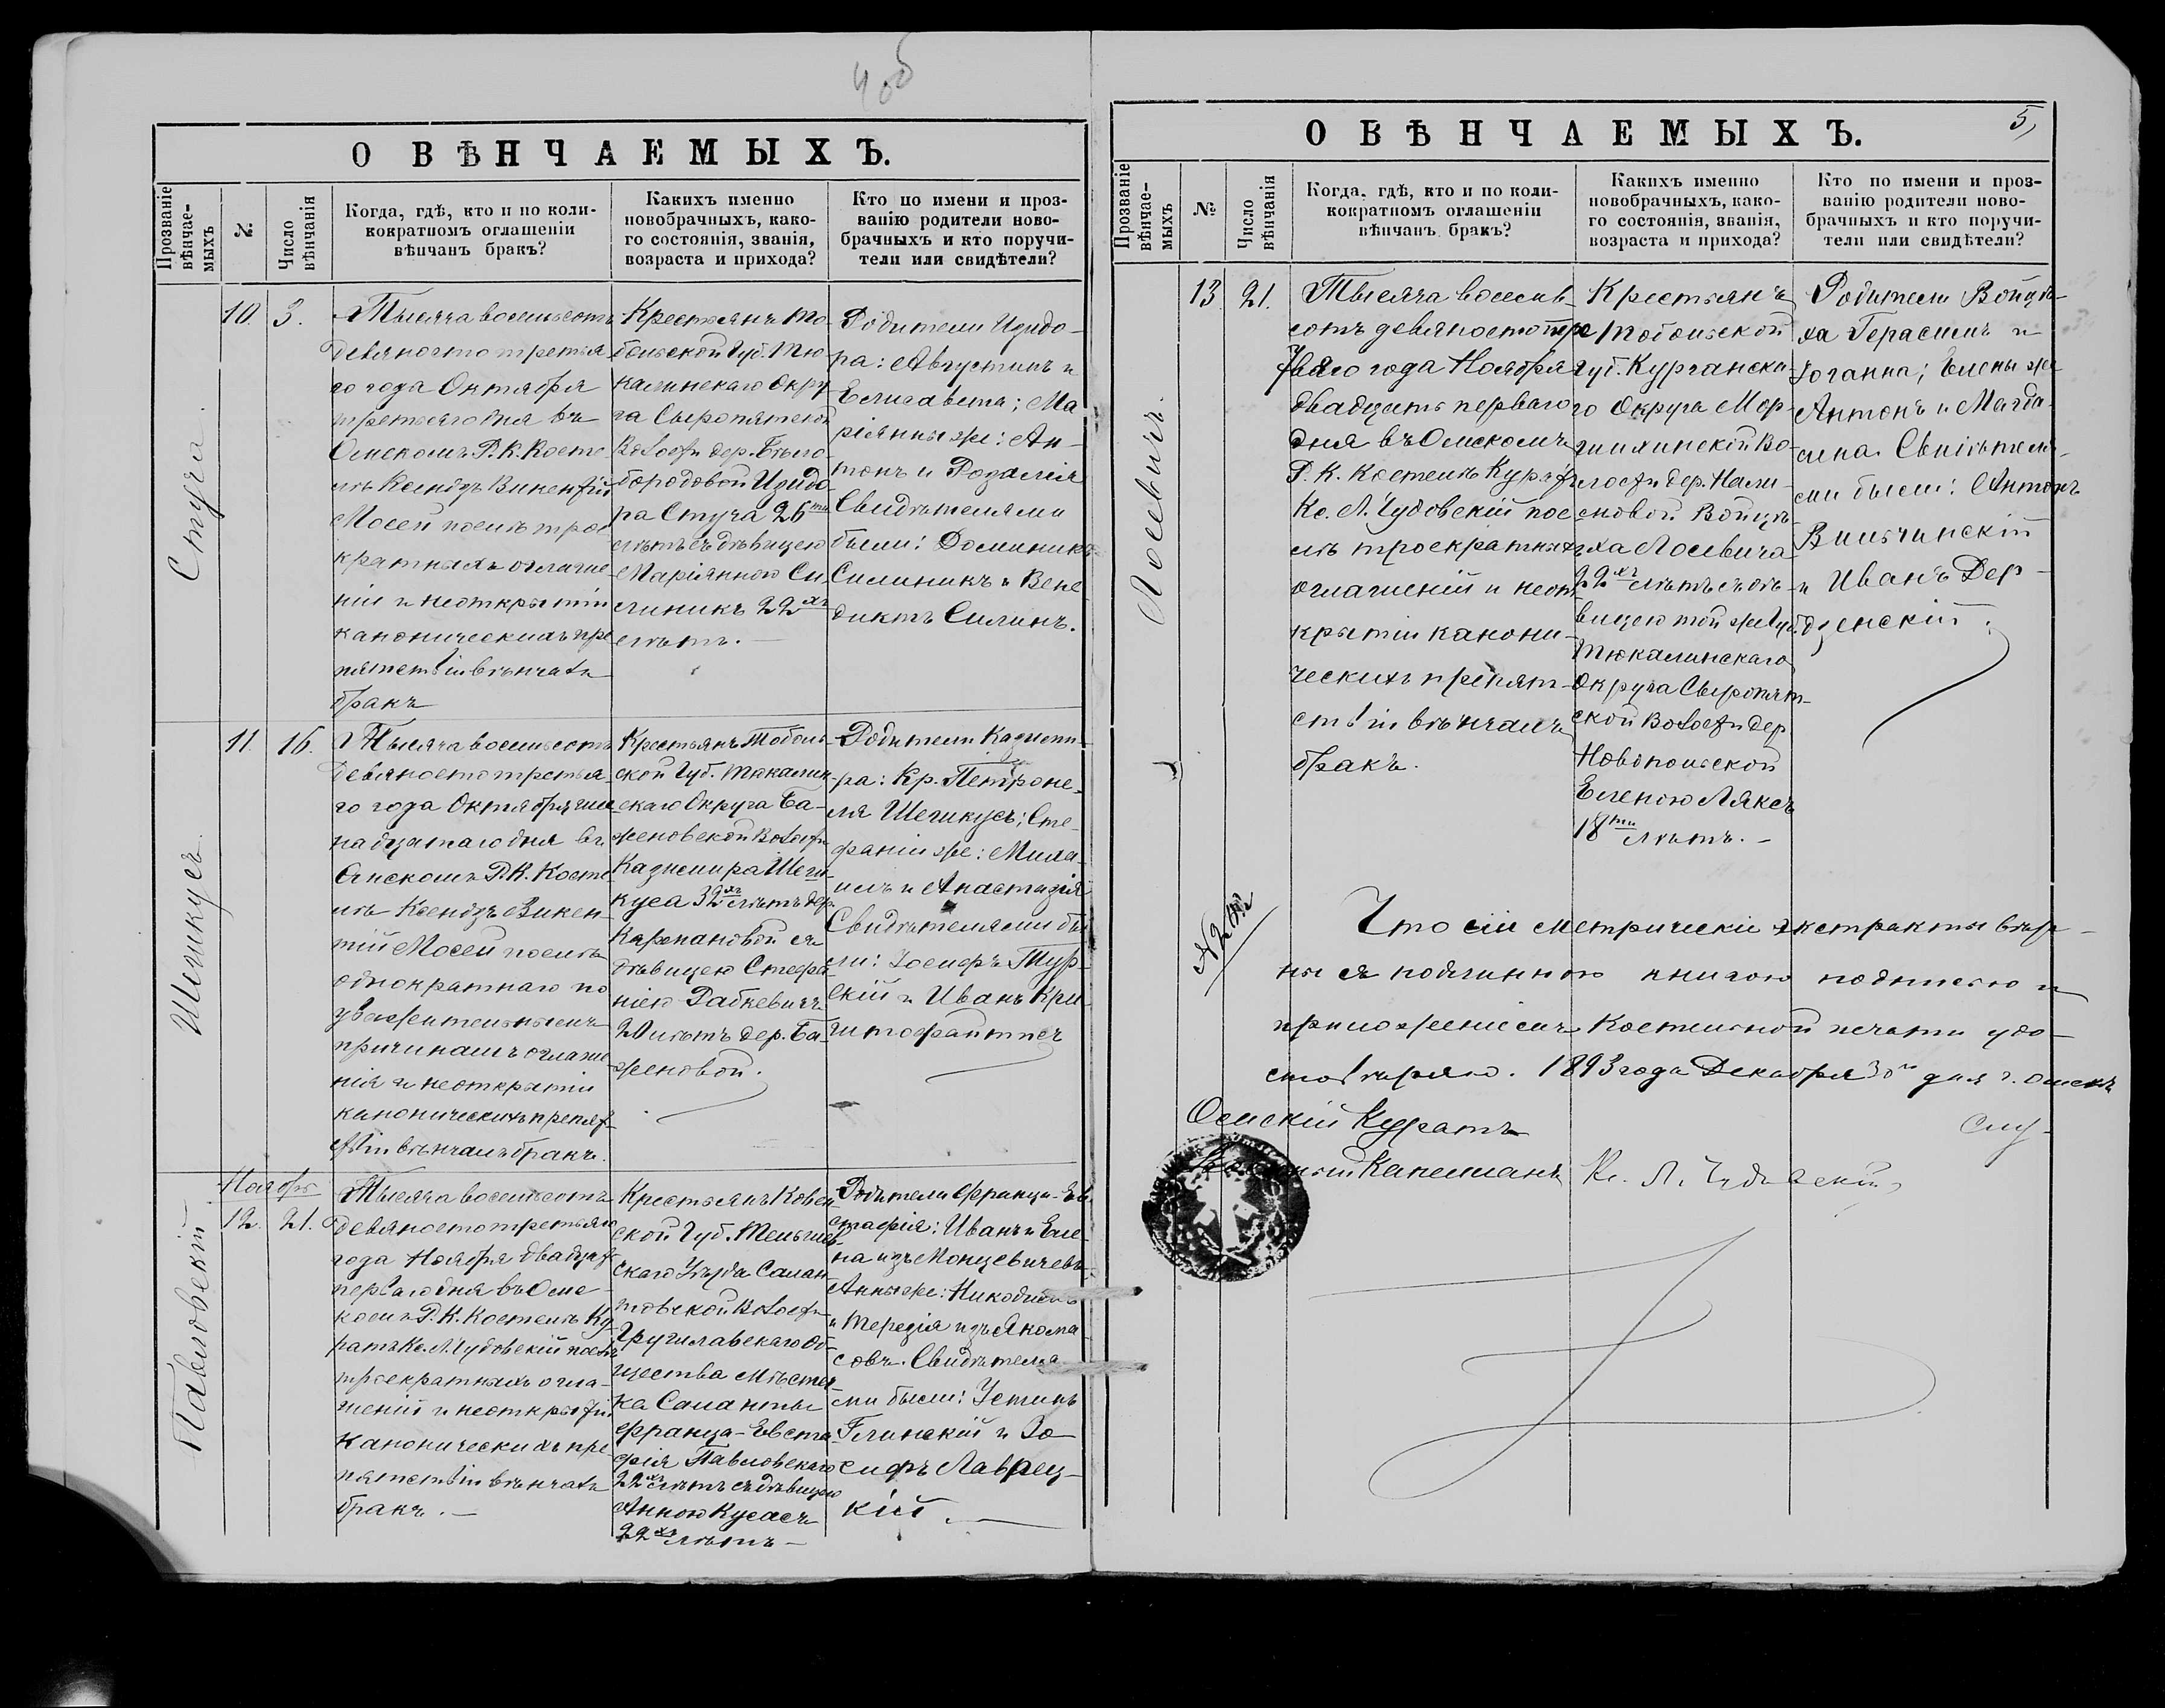 4об
О ВѢНЧАЕМЫХЪ.
Прозваніе вѣнчае-мыхъ
№
Число вѣнчанія
Когда, гдѣ, кто и по коли-
кократномъ оглашеніи
вѣнчанъ бракъ?
Какихъ именно
новобрачныхъ, како-
го состоянія, званія,
возраста и прихода?
Кто по имени и проз-
ванію родители ново-
брачныхъ и кто поручи-
тели или свидѣтели?
Стуча
10. 3.
Тысяча восемьсотъ
девяносто третья
го года Октября
третьяго дня въ
Омскомъ Р. К. Косте
лѣ Ксендзъ Викентій
Мосей послѣ трое
кратныхъ оглаше
ній и неоткрытіи
каноническихъ пре
пятствій вѣнчалъ
бракъ
Крестьянъ То-
больской Губ. Тю-
калинскаго Окру
га Сыропятской
Волости дер. Бѣло-
бородовой Изидо
ра Стуча 26ти
лѣтъ съ дѣвицею
Маріянною Си
линикъ 22хъ
лѣтъ. —
Родители Изидо-
ра: Августинъ и
Елисавета; Ма
ріянны же: Ан-
тонъ и Розалія
Свидѣтелями
были: Доминикъ
Силиникъ и Вене
диктъ Силинъ.
Шешкусъ
11. 16.
Тысяча восемьсотъ
девяносто третья-
го года Октября шес
надцатаго дня въ
Омскомъ Р. К. Косте
лѣ Ксендзъ Викен-
тій Мосей послѣ
однократнаго по
уважительнымъ
причинамъ оглаше
нія и неоткрытіи
каноническихъ препят-
ствій вѣнчалъ бракъ.
Крестьянъ Тоболь-
ской Губ. Тюкалин
скаго Округа Ба-
женовской Волости
Казимира Шеш-
куса 32хъ лѣтъ дер.
Карпановой съ
дѣвицею Стефа
ніею Рабкевичъ
20 лѣтъ дер. Ба-
женовой.
Родители Казими-
ра: Кр. Петроне-
ля Шешкусъ; Сте-
фаніи же: Миха-
илъ и Анастазія
Свидѣтелями бы
ли: Іосифъ Тур-
скій и Иванъ Кри-
штофайтисъ
Павловскій
Ноябрь
12. 21.
Тысяча восемьсотъ
девяносто третьяго
года Ноября двадцать
перваго дня въ Омс-
комъ Р. К. Костелѣ Ку-
ратъ Кс. Л. Чудовскій послѣ
троекратныхъ огла-
шеній и неоткрытіи
каноническихъ пре-
пятствій вѣнчалъ
бракъ. —
Крестьянъ Ковен
ской Губ. Тельшев
скаго Уѣзда Салан
товской Волости
Грушлавскаго об-
щества мѣстеч
ка Саланты
Франца-Евста
фія Павловскаго
22хъ лѣтъ съ дѣвицею
Анною Кусасъ
22хъ лѣтъ —
Родители Франца-Ев
стафія: Иванъ и Еле-
на изъ Монцевичевъ
Анны же: Никодимъ
и Терезія изъ Якома
совъ. Свидѣтеля
ми были: Устинъ
Глинскій и Іо
сифъ Лаврец-
кій —
5,
О ВѢНЧАЕМЫХЪ.
Прозваніе вѣнчае-мыхъ
№
Число вѣнчанія
Когда, гдѣ, кто и по коли-
кократномъ оглашеніи
вѣнчанъ бракъ?
Какихъ именно
новобрачныхъ, како-
го состоянія, званія,
возраста и прихода?
Кто по имени и проз-
ванію родители ново-
брачныхъ и кто поручи-
тели или свидѣтели?
Лосевичъ.
13 21.
Тысяча восемь-
сотъ девяносто тре
тьяго года Ноября
двадцать перваго
дня въ Омскомъ
Р. К. Костелѣ Куратъ
Кс. Л. Чудовскій пос
лѣ троекратныхъ
оглашеній и неот
крытіи канони-
ческихъ препят-
ствій вѣнчалъ
бракъ.
Крестьянъ
Тобольской
Губ. Курганска-
го Округа Мор-
шихинской Во-
лости дер. Нали-
мовой Войцѣ-
ха Лосевича
22хъ лѣтъ съ дѣ-
вицею той же Губ.
Тюкалинскаго
Округа Сыропят-
ской Волости дер
Новопольской
ЕленоюЛяксъ
18ти лѣтъ. —
Родители Войцѣ-
ха Герасимъ и
Іоганна; Елены же
Антонъ и Магда-
лина. Свидѣтеля-
ми были: Антонъ
Вильчинскій
и Иванъ Дер-
дзенскій.
Что сіи метрическіе экстракты вѣр-
ны съ подлинною книгою подписью и
приложеніемъ Костельной печати удо-
стовѣряю. 1893 года Декабря 30го дня г. Омскъ
Омскій Куратъ
Капеланъ Кс. Л. Чудовскій